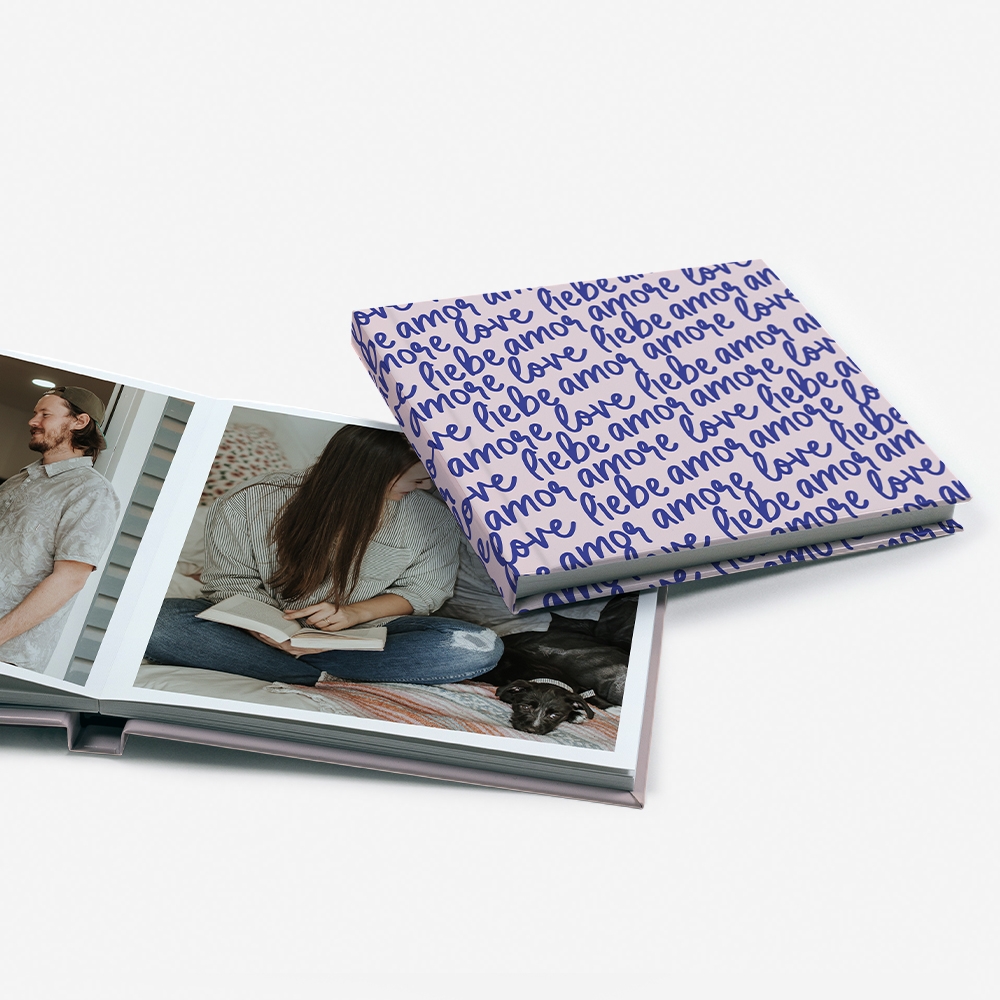 amor
amore love liebe
liebe amor amore love
amore love liebe amor
liebe amor amore love
amore love liebe amor
love liebe amor amore love
amor amore love liebe
love liebe amor amore
amor amore love liebe
liebe amor
amore love